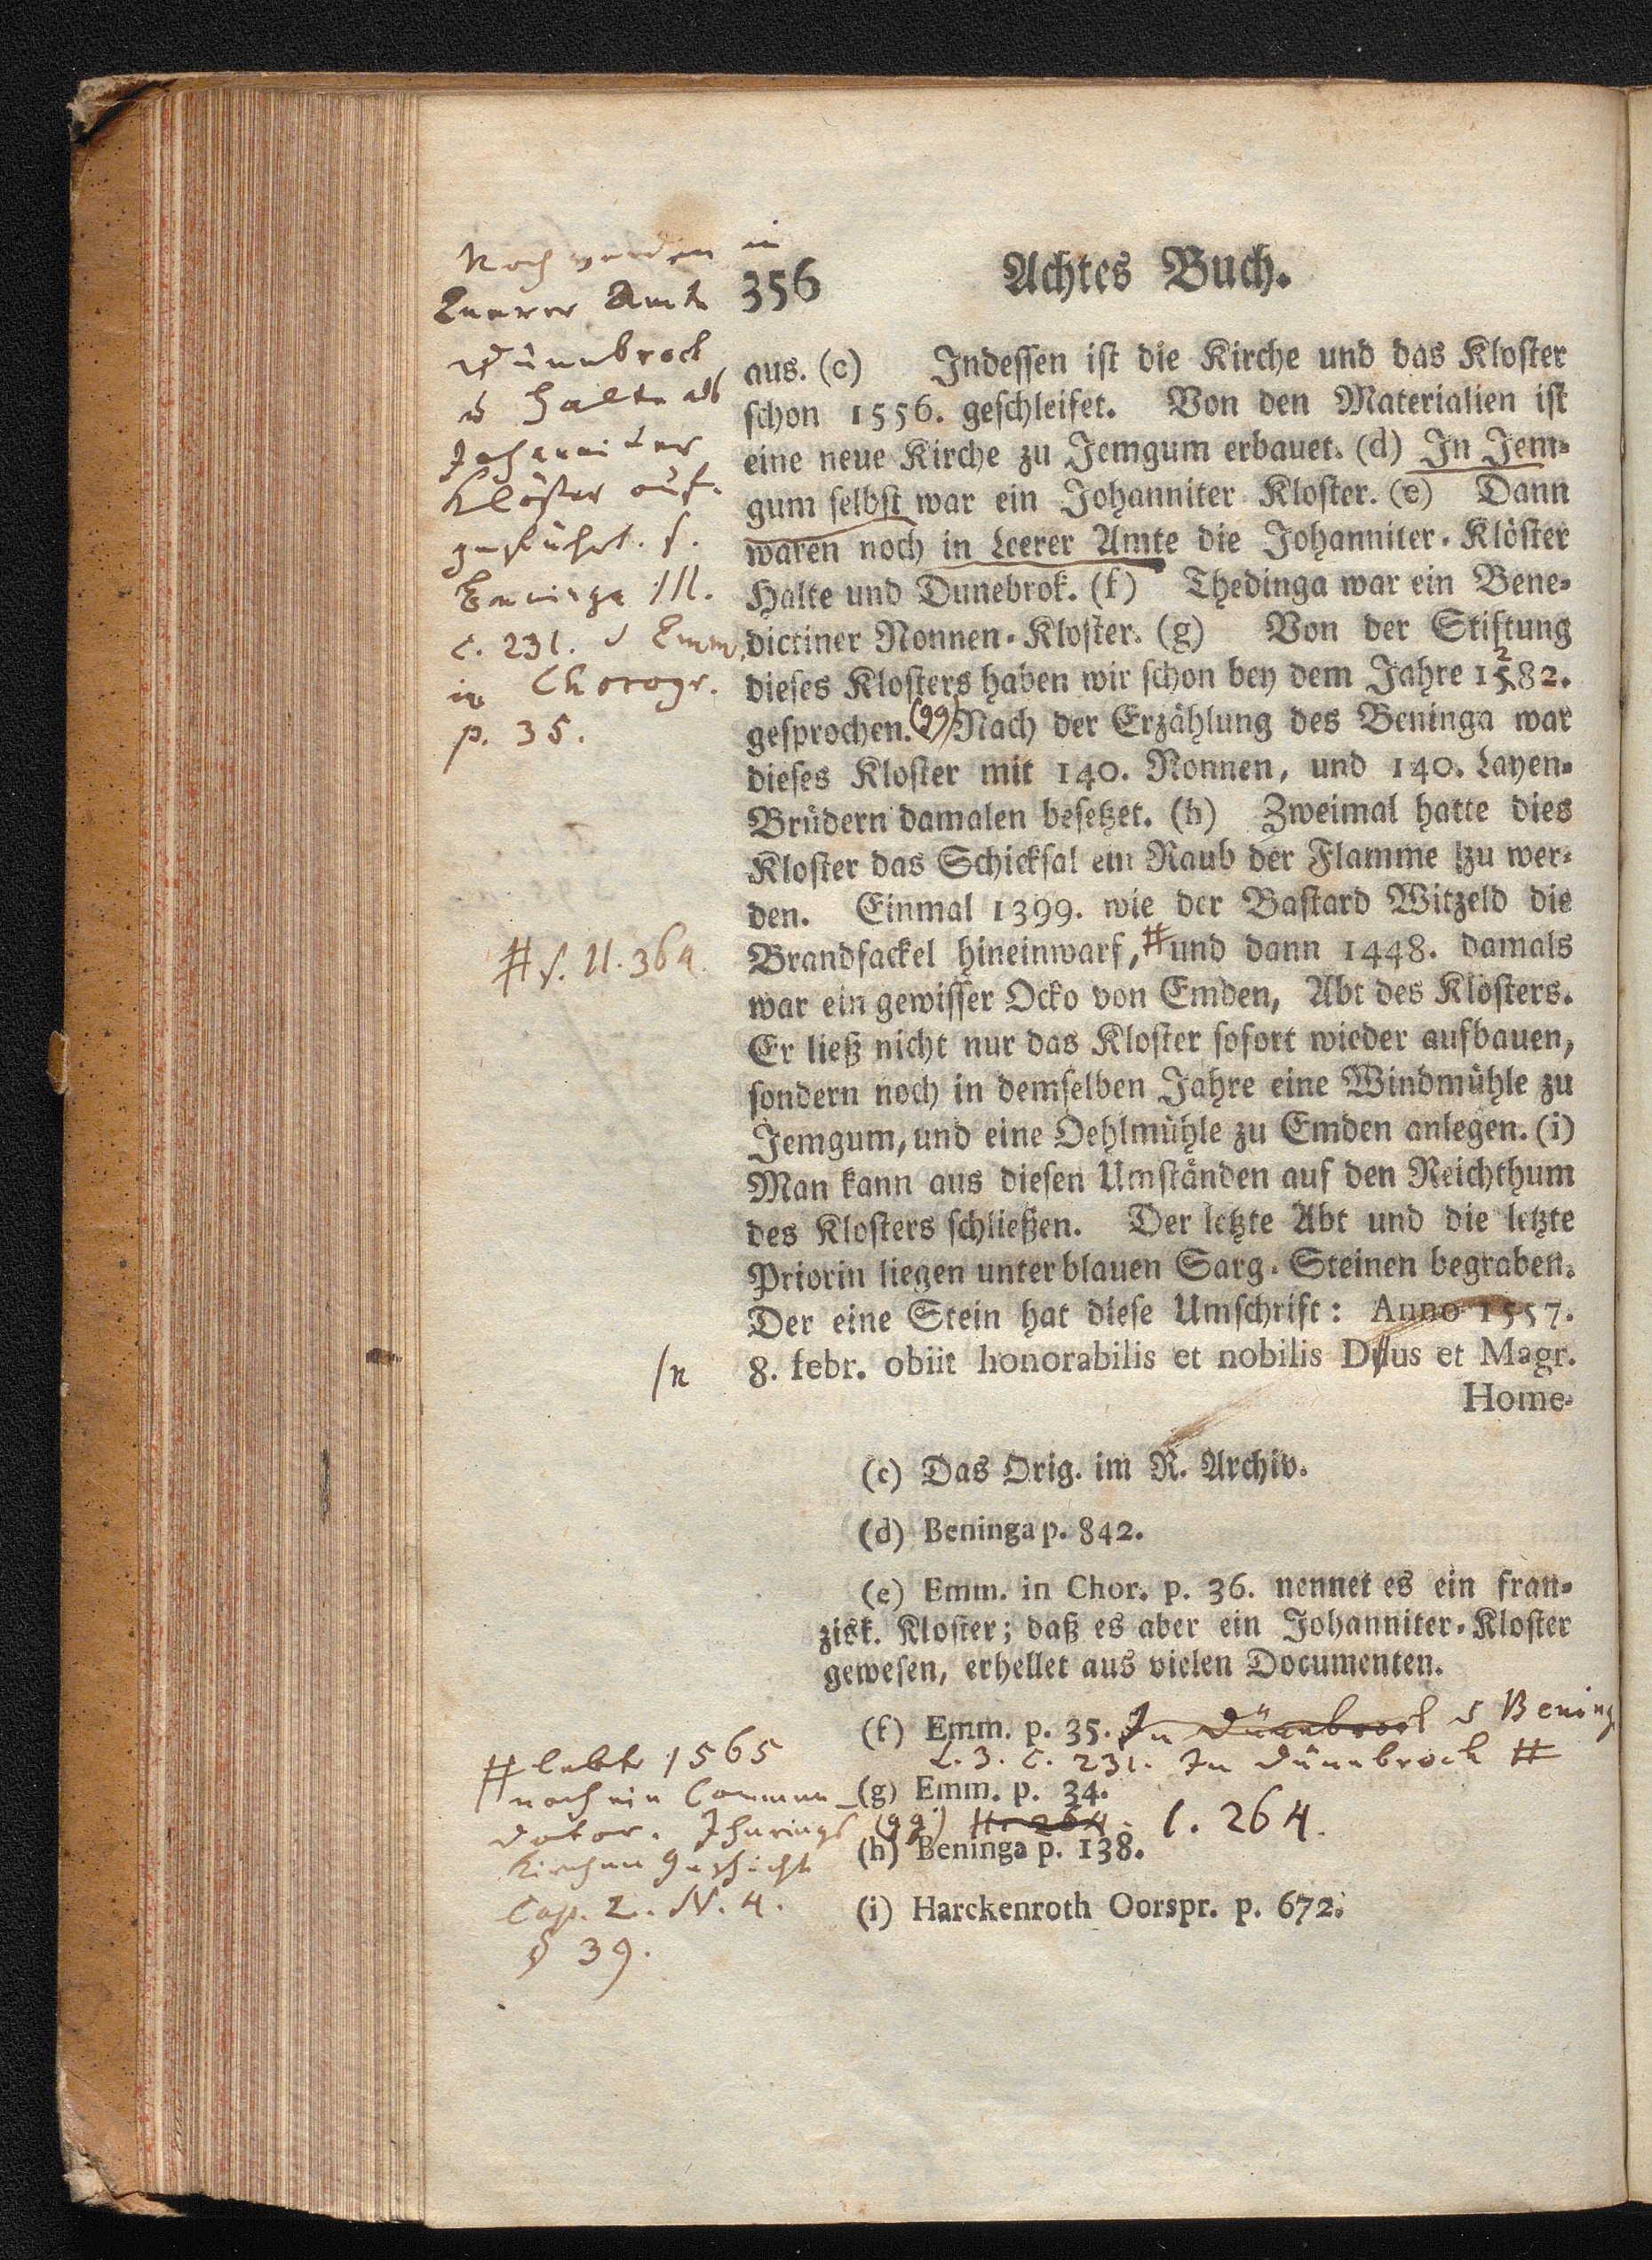 356 Achtes Buch.
aus. (c) Indessen ist die Kirche und das Kloster
schon 1556. geschleifet. Von den Materialien ist
eine neue Kirche zu Jemgum erbauet. (d) In Jem-
gum selbst war ein Johanniter Kloster. (e) Dann
waren noch in Leerer Amte die Johanniter-Klöster
Halte und Dunebrok. (f) Thedinga war ein Bene-
dictiner Nonnen-Kloster. (g) Von der Stiftung
dieses Klosters haben wir schon bey dem Jahre 1582.
gesprochen. (gg) Nach der Erzählung des Beninga war
dieses Kloster mit 140. Nonnen, und 140. Layen-
Brüdern damalen besetzet. (h) Zweimal hatte dies
Kloster das Schicksal ein Raub der Flamme zu wer-
den. Einmal 1399. wie der Bastard Witzeld die
Brandfackel hineinwarf, # und dann 1448. damals
war ein gewisser Ocko von Emden, Abt des Klosters.
Er ließ nicht nur das Kloster sofort wieder aufbauen,
sondern noch in demselben Jahre eine Windmühle zu
Jemgum, und eine Oehlmühle zu Emden anlegen. (i)
Man kann aus diesen Umständen auf den Reichthum
des Klosters schließen. Der letzte Abt und die letzte
Priorin liegen unter blauen Sarg-Steinen begraben.
Der eine Stein hat diese Umschrift: Anno 1557.
8. febr. obiit honorabilis et nobilis Dnus et Magr.
Home-
(c) Das Orig. im R. Archiv.
(d) Beninga p. 842.
(e) Emm. in Chor. p. 36. nennet es ein fran-
zisk. Kloster; daß es aber ein Johanniter-Kloster
gewesen, erhellet aus vielen Documenten.
(f) Emm. p. 35. In Dünebrock Bening
L. 3. c. 231. In Dünebrock #
(g) Emm. p. 34.
(gg) 1. 264.
(h) Beninga p. 138.
(i) Harckenroth Oorspr. p. 672.
Noch werden in
Leerer Amte
Dünebrock
u Halte als
Johanniter
Klöster auf-
geführt. s.
Beninga III.
c. 231. u Emm.
in Chorogr.
p. 35.
# s. II. 364.
/n
# lebte 1565
noch ein Commen-
dator. Iherings
Kirchen Geschicht
Cap. 2. N. 4.
§ 39.